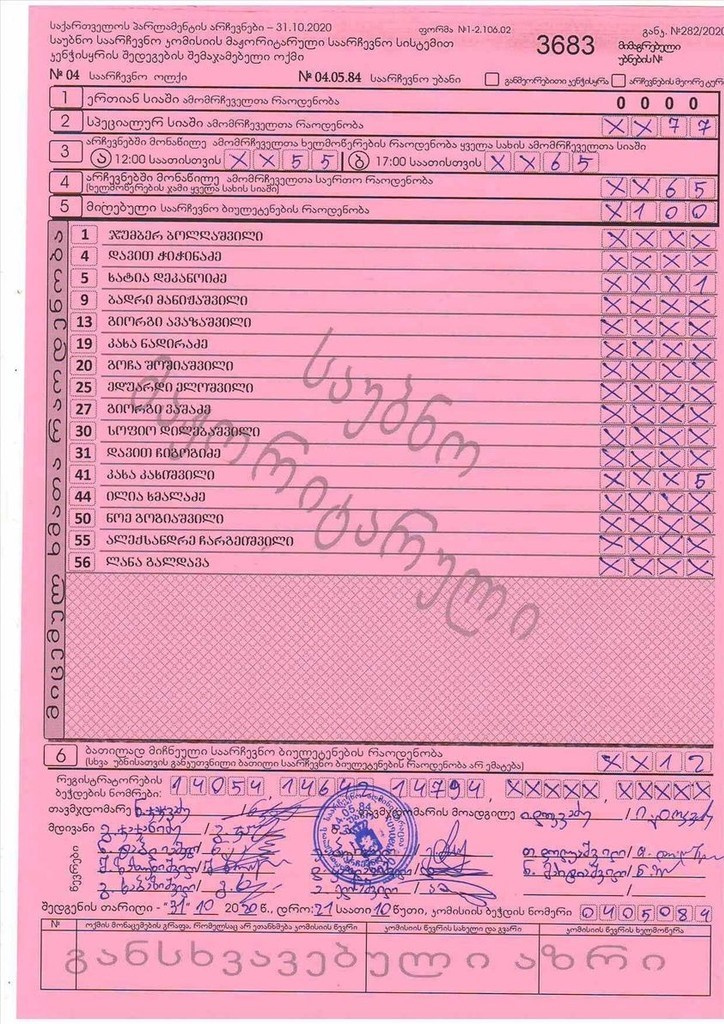 საქართველოს პარლამენტის არჩევნები – 31.10.2020
ფორმა №1-2.106.02
განკ. №282/2020
საუბნო საარჩევნო კომისიის მაჟორიტარული საარჩევნო სისტემით
კენჭისყრის შედეგების შემაჯამებელი ოქმი
3683
მიმაგრებელი
უბნების №
№ 04 საარჩევნო ოლქი № 04.05.84 საარჩევნო უბანი განმეორებითი კენჭისყრა არჩევნების მეორე ტურ
1 ერთიან სიაში ამომრჩეველთა რაოდენობა 0 0 0 0
2 სპეციალურ სიაში ამომრჩეველთა რაოდენობა X X 7 7
3 არჩევნებში მონაწილე ამომრჩეველთა ხელმოწერების რაოდენობა ყველა სახის ამომრჩეველთა სიაში
ა 12:00 საათისთვის X X 5 5 ბ 17:00 საათისთვის X X 6 5
4 არჩევნებში მონაწილე ამომრჩეველთა საერთო რაოდენობა X X 6 5
(ხელმოწერების ჯამი ყველა სახის სიაში)
5 მიღებული საარჩევნო ბიულეტენების რაოდენობა X 1 0 0
მიცემულ ხმათა რაოდენობა
1 ჯუმბერ ბოლღაშვილი X X X X
4 დავით ჭიჭინაძე X X X X
5 ხატია დეკანოიძე X X X 1
9 ბადრი მანიჟაშვილი X X X X
13 გიორგი ავაზაშვილი X X X X
19 კახა ნადირაძე X X X X
20 გოჩა შოშიაშვილი X X X X
25 ედუარდი ელოშვილი X X X X
27 გიორგი ვაშაძე X X X X
30 სოფიო დილებაშვილი X X X X
31 დავით ჩიბოგიძე X X X X
41 კახა კახიშვილი X X X 5
44 ილია ხმალაძე X X X X
50 ნოე გოგიაშვილი X X X X
55 ალექსანდრე ჩარგეიშვილი X X X X
56 ლანა გალდავა X X X X
საუბნო
მაჟორიტარული
6 ბათილად მიჩნეული საარჩევნო ბიულეტენების რაოდენობა X X 1 2
(სხვა უბნისათვის განკუთვნილი ბათილი საარჩევნო ბიულეტენების რაოდენობა არ ემატება)
რეგისტრატორების
ბეჭდების ნომრები: 14054 14642 14794 XXXXX XXXXX
თავმჯდომარე თავმჯდომარის მოადგილე
მდივანი
წევრები
შედგენის თარიღი - "31" 10 2020 წ., დრო: 21 საათი 10 წუთი, კომისიის ბეჭდის ნომერი 0405084
№ ოქმის მონაცემების გრაფა, რომელსაც არ ეთანხმება კომისიის წევრი კომისიის წევრის სახელი და გვარი კომისიის წევრის ხელმოწერა
განსხვავებული აზრი